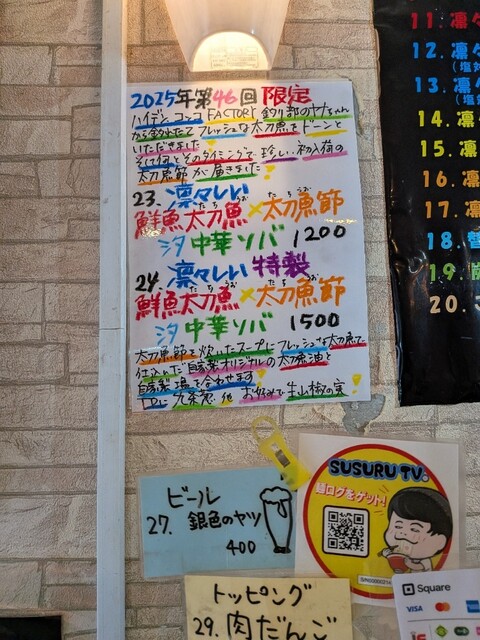 2025年第46回 限定
ハイデン コッコ FACTORY 釣り部のヤナちゃん
から釣りたて フレッシュな太刀魚をドーンと
いただきました
そして何とそのタイミングで珍しい初入荷の
太刀魚節が届きました!
23. 凛々しい
たちうお たちうお
鮮魚太刀魚×太刀魚節
汐 中華ソバ 1200
24. 凛々しい 特製
たちうお たちうお
鮮魚太刀魚×太刀魚節
汐 中華ソバ 1500
太刀魚節を炊いたスープにフレッシュな太刀魚で
仕込んだ自家製オリジナルの太刀魚油と
自家製塩を合わせます!
九条葱 他 お好みで生山椒の実!
11. 凛
12. 凛
(塩
13. 凛
(塩
14. 凛
15. 凛
16. 凛
17. 凛
18.
19
20.
ビール
27. 銀色のヤツ
400
トッピング
29. 肉だんご
SUSURU TV.
麺ログをゲット!
Square
VISA